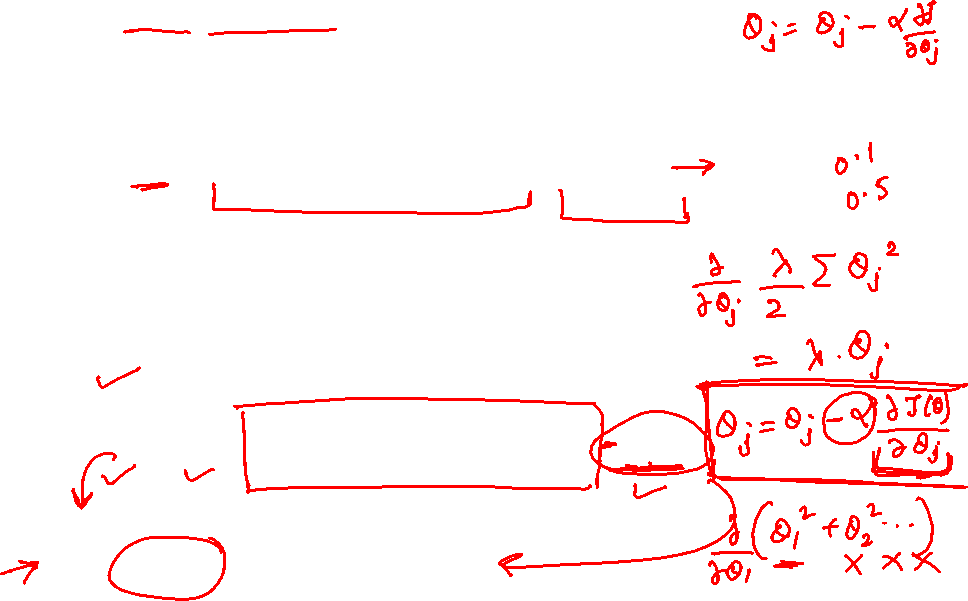 θj = θj - α ∂J/∂θj
0.1
0.5
∂/∂θj λ/2 Σ θj²
= λ . θj
θj = θj - α ∂J(θ)/∂θj
∂/∂θ₁ (θ₁² + θ₂² ...)
× × ×